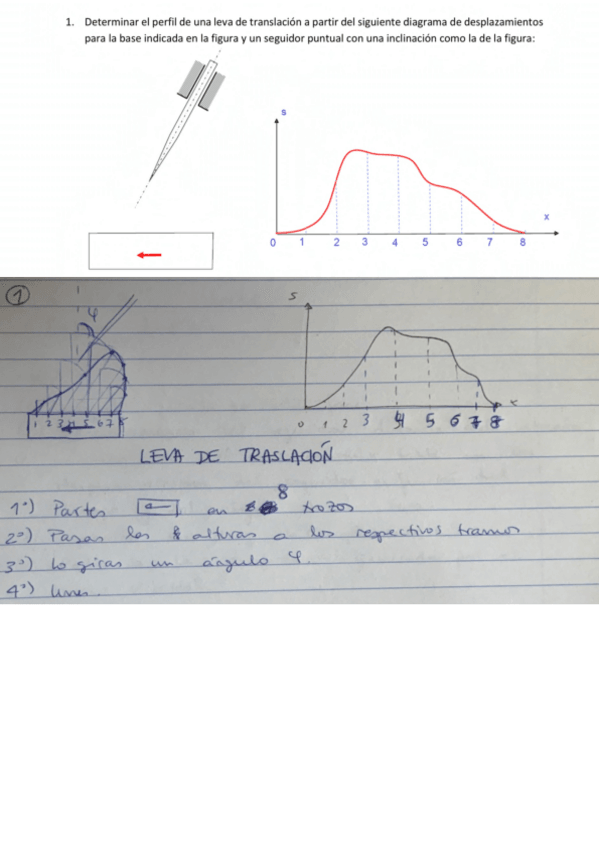 1. Determinar el perfil de una leva de translación a partir del siguiente diagrama de desplazamientos
para la base indicada en la figura y un seguidor puntual con una inclinación como la de la figura:
s
x
0 1 2 3 4 5 6 7 8
1
φ
s
x
1 2 3 4 5 6 7 8
0 1 2 3 4 5 6 7 8
LEVA DE TRASLACIÓN
1º) Partes en 8 trozos
2º) Pasas las alturas a los respectivos tramos
3º) Lo giras un ángulo φ.
4º) Unes.